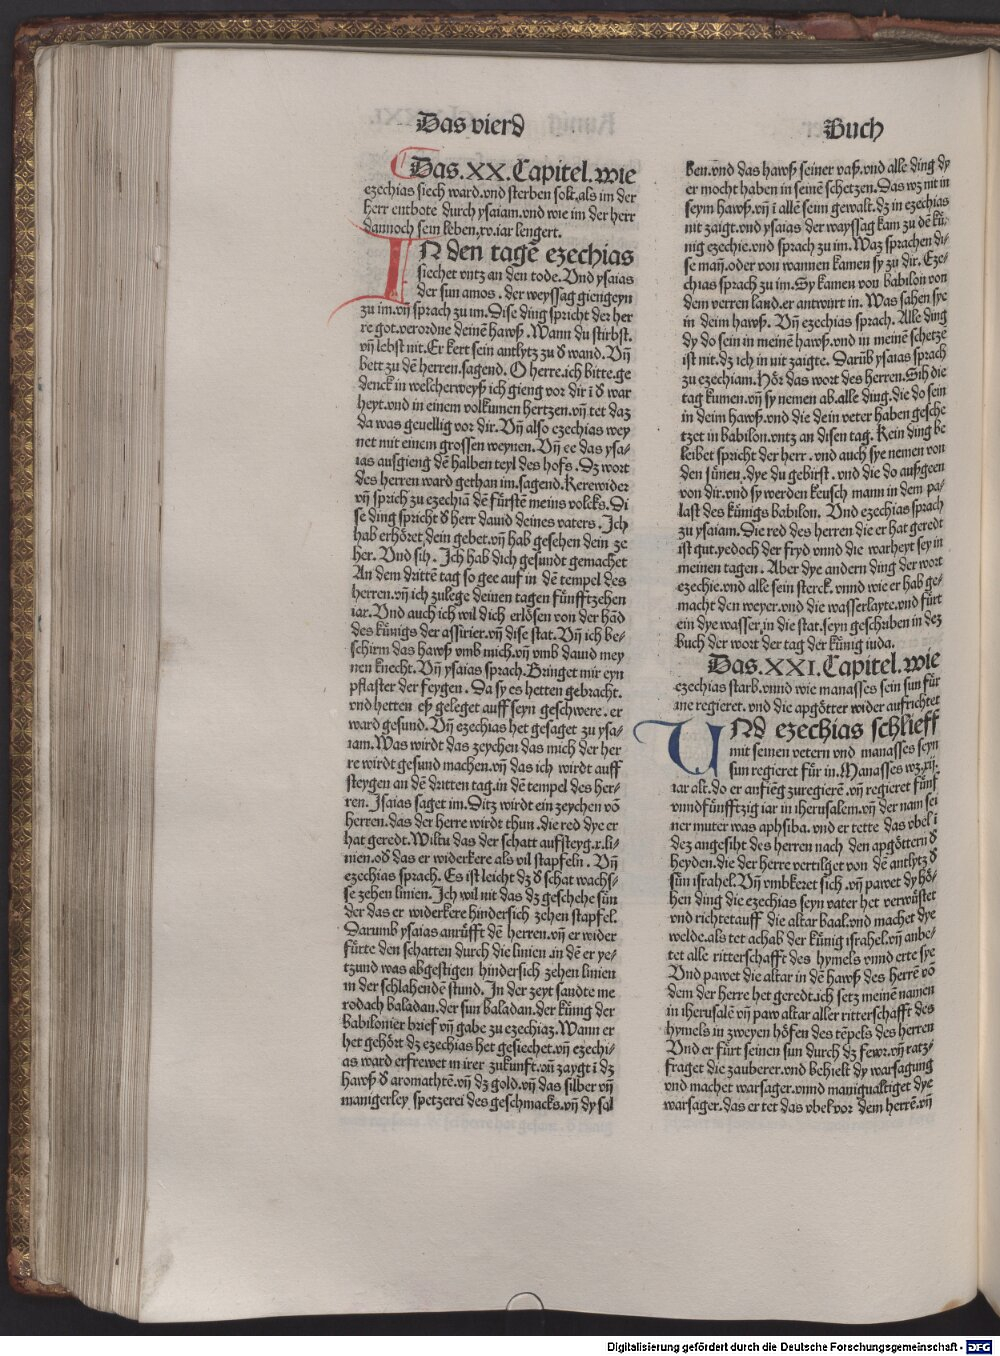 Das vierd
Buch
Das.XX.Capitel.wie
ezechias siech ward.vnd sterben solt.als im der
herr entbote durch ysaiam.vnd wie im der herr
dannoch sein leben.xv.iar lengert.
IN den tagē ezechias
siechet vntz an den tode. Vnd ysaias
der sun amos . der weyssag gieng eyn
zu im.vn̄ sprach zu im. Dise ding spricht der her
re got.verordne deinē hawß . Wann du stirbst.
vn̄ lebst nit. Er kert sein antlytz zu d̕ wand. Vn̄
bett zu dē herren.sagend. O herre.ich bitte.ge
denck in welcherweyß ich gieng vor dir i d̕ war
heyt.vnd in einem volkumen hertzen.vn̄ tet daz
da was geuellig vor dir. Vn̄ also ezechias wey
net mit einem grossen weynen. Vn̄ ee das ysa-
ias ausgieng dē halben teyl des hofs . Dz wort
des herren ward gethan im.sagend. Kerewider
vn̄ sprich zu ezechiā dē fürstē meins volcks. Di
se ding spricht d̕ herr dauid deines vaters . Ich
hab erhöret dein gebet.vn̄ hab gesehen dein ze
her. Vnd sih . Ich hab dich gesundt gemachet
An dem drittē tag so gee auf in dē tempel des
herren.vn̄ ich zulege deinen tagen fünfftzehen
iar. Vnd auch ich wil dich erlösen von der hād
des künigs der assirier.vn̄ dise stat. Vn̄ ich be-
schirm das hawß vmb mich.vn̄ vmb dauid mey
nen knecht. Vn̄ ysaias sprach. Bringet mir eyn
pflaster der feygen . Da sy es hetten gebracht.
vnd hetten eß geleget auff seyn geschwere . er
ward gesund. Vn̄ ezechias het gesaget zu ysa-
iam. Was wirdt das zeychen das mich der her
re wirdt gesund machen.vn̄ das ich wirdt auff
steygen an dē dritten tag.in dē tempel des her-
ren. Isaias saget im. Ditz wirdt ein zeychen vō
herren.das der herre wirdt thun .die red dye er
hat geredt. Wiltu das der schatt aufsteyg.x.li-
nien.od̕ das er widerkere als vil stapfeln . Vn̄
ezechias sprach. Es ist leicht dz d̕ schat wachs-
se zehen linien. Ich wil nit das dz geschehe sūn
der das er widerkere hindersich zehen stapfel.
Darumb ysaias anrüfft dē herren.vn̄ er wider
fürte den schatten durch die linien .in dē er ye-
tzund was abgestigen hindersich zehen linien
in der schlahendē stund. In der zeyt sandte me
rodach baladan.der sun baladan.der künig der
babilonier brief vn̄ gabe zu ezechiaz. Wann er
het gehört dz ezechias het gesiechet.vn̄ ezechi-
as ward erfrewet in irer zukunft.vn̄ zaygt ī dz
hawß d̕ aromathtē.vn̄ dz gold.vn̄ das silber vn̄
manigerley spetzerei des geschmacks.vn̄ dy sal
ben.vnd das hawß seiner vaß.vnd alle ding dy
er mocht haben in seinē schetzen. Das wz nit in
seym hawß.vn̄ ī allē seim gewalt.dz in ezechias
nit zaigt.vnd ysaias der wayssag kam zu dē kü-
nig ezechie.vnd sprach zu im. Waz sprachen di-
se man̄.oder von wannen kamen sy zu dir. Eze-
chias sprach zu im. Sy kamen von babilon von
dem verren land.er antwurt in. Was sahen sye
in deim hawß. Vn̄ ezechias sprach. Alle ding
dy do sein in meinē hawß.vnd in meinē schetzē
ist nit.dz ich in nit zaigte. Darūb ysaias sprach
zu ezechiam. Hör das wort des herren. Sih die
tag kumen.vn̄ sy nemen ab.alle ding.die do sein
in deim hawß.vnd die dein veter haben gesche
tzet in babilon.vntz an disen tag. Kein ding be
leibet spricht der herr . vnd auch sye nemen von
den sünen .dye du gebirst . vnd die do außgeen
von dir.vnd sy werden keusch mann in dem pa-
last des künigs babilon. Vnd ezechias sprach
zu ysaiam. Die red des herren die er hat geredt
ist gut.yedoch der fryd vnnd die warheyt sey in
meinen tagen . Aber dye andern ding der wort
ezechie.vnd alle sein sterck.vnnd wie er hab ge-
macht den weyer.vnd die wasserlayte.vnd fürt
ein dye wasser in die stat.seyn geschriben in dez
buch der wort der tag der künig iuda.
Das.XXI.Capitel.wie
ezechias starb.vnnd wie manasses sein sun für
ine regieret.vnd die apgötter wider aufrichtet
VNd ezechias schlieff
mit seinen vetern vnd manasses seyn
sun regieret für in. Manasses wz.xij.
iar alt.do er anfieng zuregierē.vn̄ regieret fünf
vnndfünfftzig iar in iherusalem.vn̄ der nam sei
ner muter was aphsiba.vnd er tette das vbel ī
dez angesiht des herren nach den apgöttern d̕
heyden.die der herre vertilget von dē antlytz d̕
sün israhel. Vn̄ vmbkeret sich .vn̄ pawet dy hö-
hen ding die ezechias seyn vater het verwüstet
vnd richtetauff die altar baal.vnd machet dye
welde.als tet achab der künig israhel.vn̄ anbe-
tet alle ritterschafft des hymels vnnd erte sye
Vnd pawet die altar in dē hawß des herrē vō
dem der herre het geredt.ich setz meinē namen
in iherusalē vn̄ paw altar aller ritterschafft des
hymels in zweyen höfen des tēpels des herren
Vnd er fürt seinen sun durch dz fewr.vn̄ ratz-
fraget die zauberer.vnd behielt dy warsagung
vnd machet warsager.vnnd manigualtiget dye
warsager.das er tet das vbel vor dem herrē.vn̄
Digitalisierung gefördert durch die Deutsche Forschungsgemeinschaft - DFG